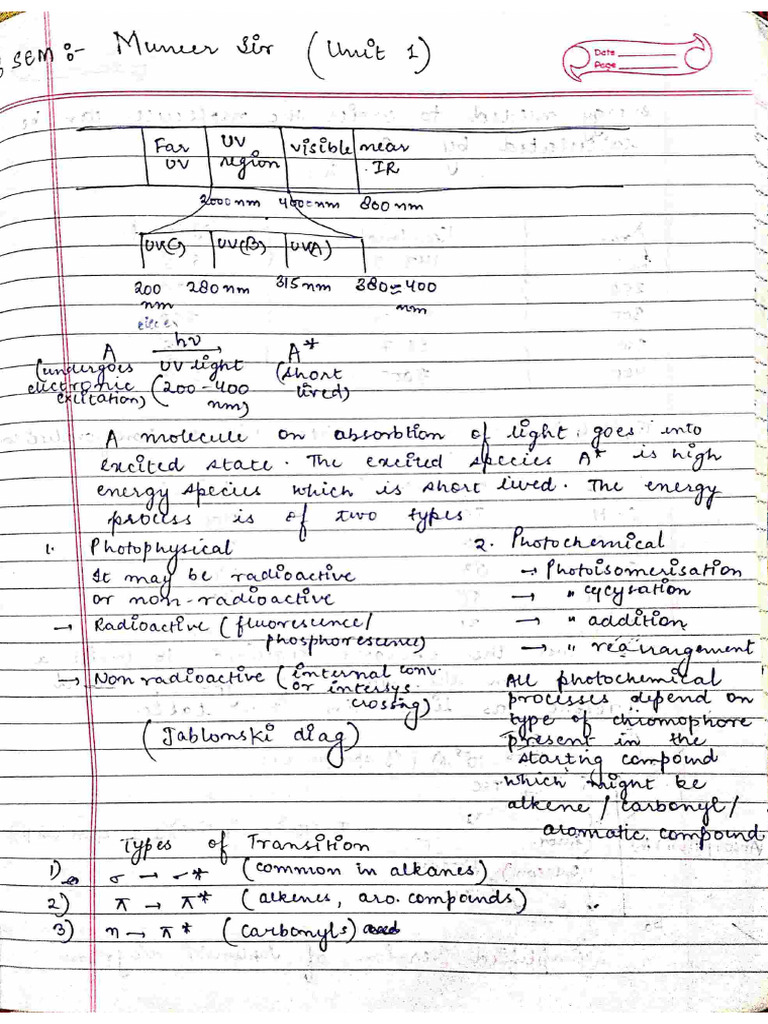 SEM :- Muneer Sir (Unit 1)
Date
Page
Far UV | UV region | visible | near IR
2000 nm 400 nm 800 nm
UV(C) | UV(B) | UV(A)
200 nm 280 nm 315 nm 380 ≈ 400 nm
A hν → A*
(undergoes electronic excitation) UV light (200 - 400 nm) (short lived)
A molecule on absorbtion of light goes into
excited state. The excited species A* is high
energy species which is short lived. The energy
process is of two types
1. Photophysical
It may be radioactive
or non-radioactive
→ Radioactive (fluorescence/
phosphorescence)
→ Non radioactive (internal conv.
or intersys.
crossing)
(Jablonski diag)
2. Photochemical
→ Photoisomerisation
→ " cycysation
→ " addition
→ " rearrangement
All photochemical
processes depend on
type of chromophore
present in the
starting compound
which might be
alkene / carbonyl /
aromatic compound
Types of Transition
1) σ → σ* (common in alkanes)
2) π → π* (alkenes, aro. compounds)
3) n → π* (carbonyls)